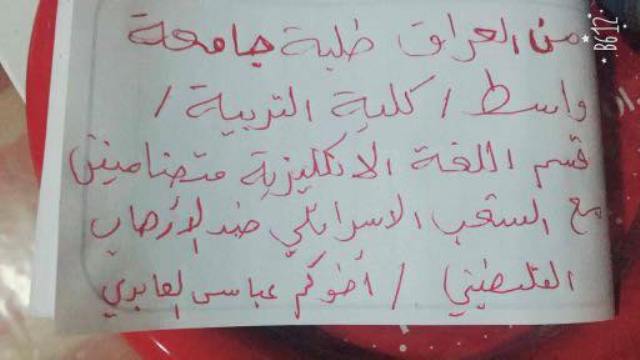 من العراق طلبة جامعة
واسط / كلية التربية /
قسم اللغة الانكليزية متضامنين
مع الشعب الاسرائلي ضد الأرهاب
الفلسطيني / أخوكم عباس العابدي
B612